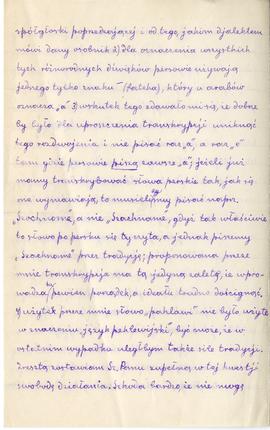 spółgłoski poprzedzającej i od tego, jakim djalektem
mówi dany osobnik 2) dla oznaczenia wszystkich
tych różnorodnych dźwięków persowie używają
jednego tylko znaku (fatcha), który u arabów
oznacza „a” 3) wskutek tego zdawało mi się, że dobrze
by było dla uproszczenia transkrypcji uniknąć
tego rozdwojenia i nie pisać raz „a”, a raz „e”
tam gdzie persowie piszą zawsze „a”; jeżeli już
mamy transkrybować słowa perskie tak, jak się
one wymawiają, to musielibyśmy pisać napr.
Szachnome, a nie „Szachname”, gdyż tak właściwie
to słowo po persku się czyta, a jednak piszemy
„Szachname” przez tradycję; proponowana przeze
mnie transkrypcja ma tą jedyną zaletę, że wpro-
wadza pewien porządek, a ideału trudno doścignąć.
Użyłek przeze mnie słowo „pahlawi” nie było użyte
w znaczeniu „język pehlewijski”, być może, że w
ostatnim wypadku uległbym także sile tradycji.
Zresztą zostawiam Sz. Panu zupełną w tej kwestji
swobodę działania. Szkoda bardzo, że nie mogę